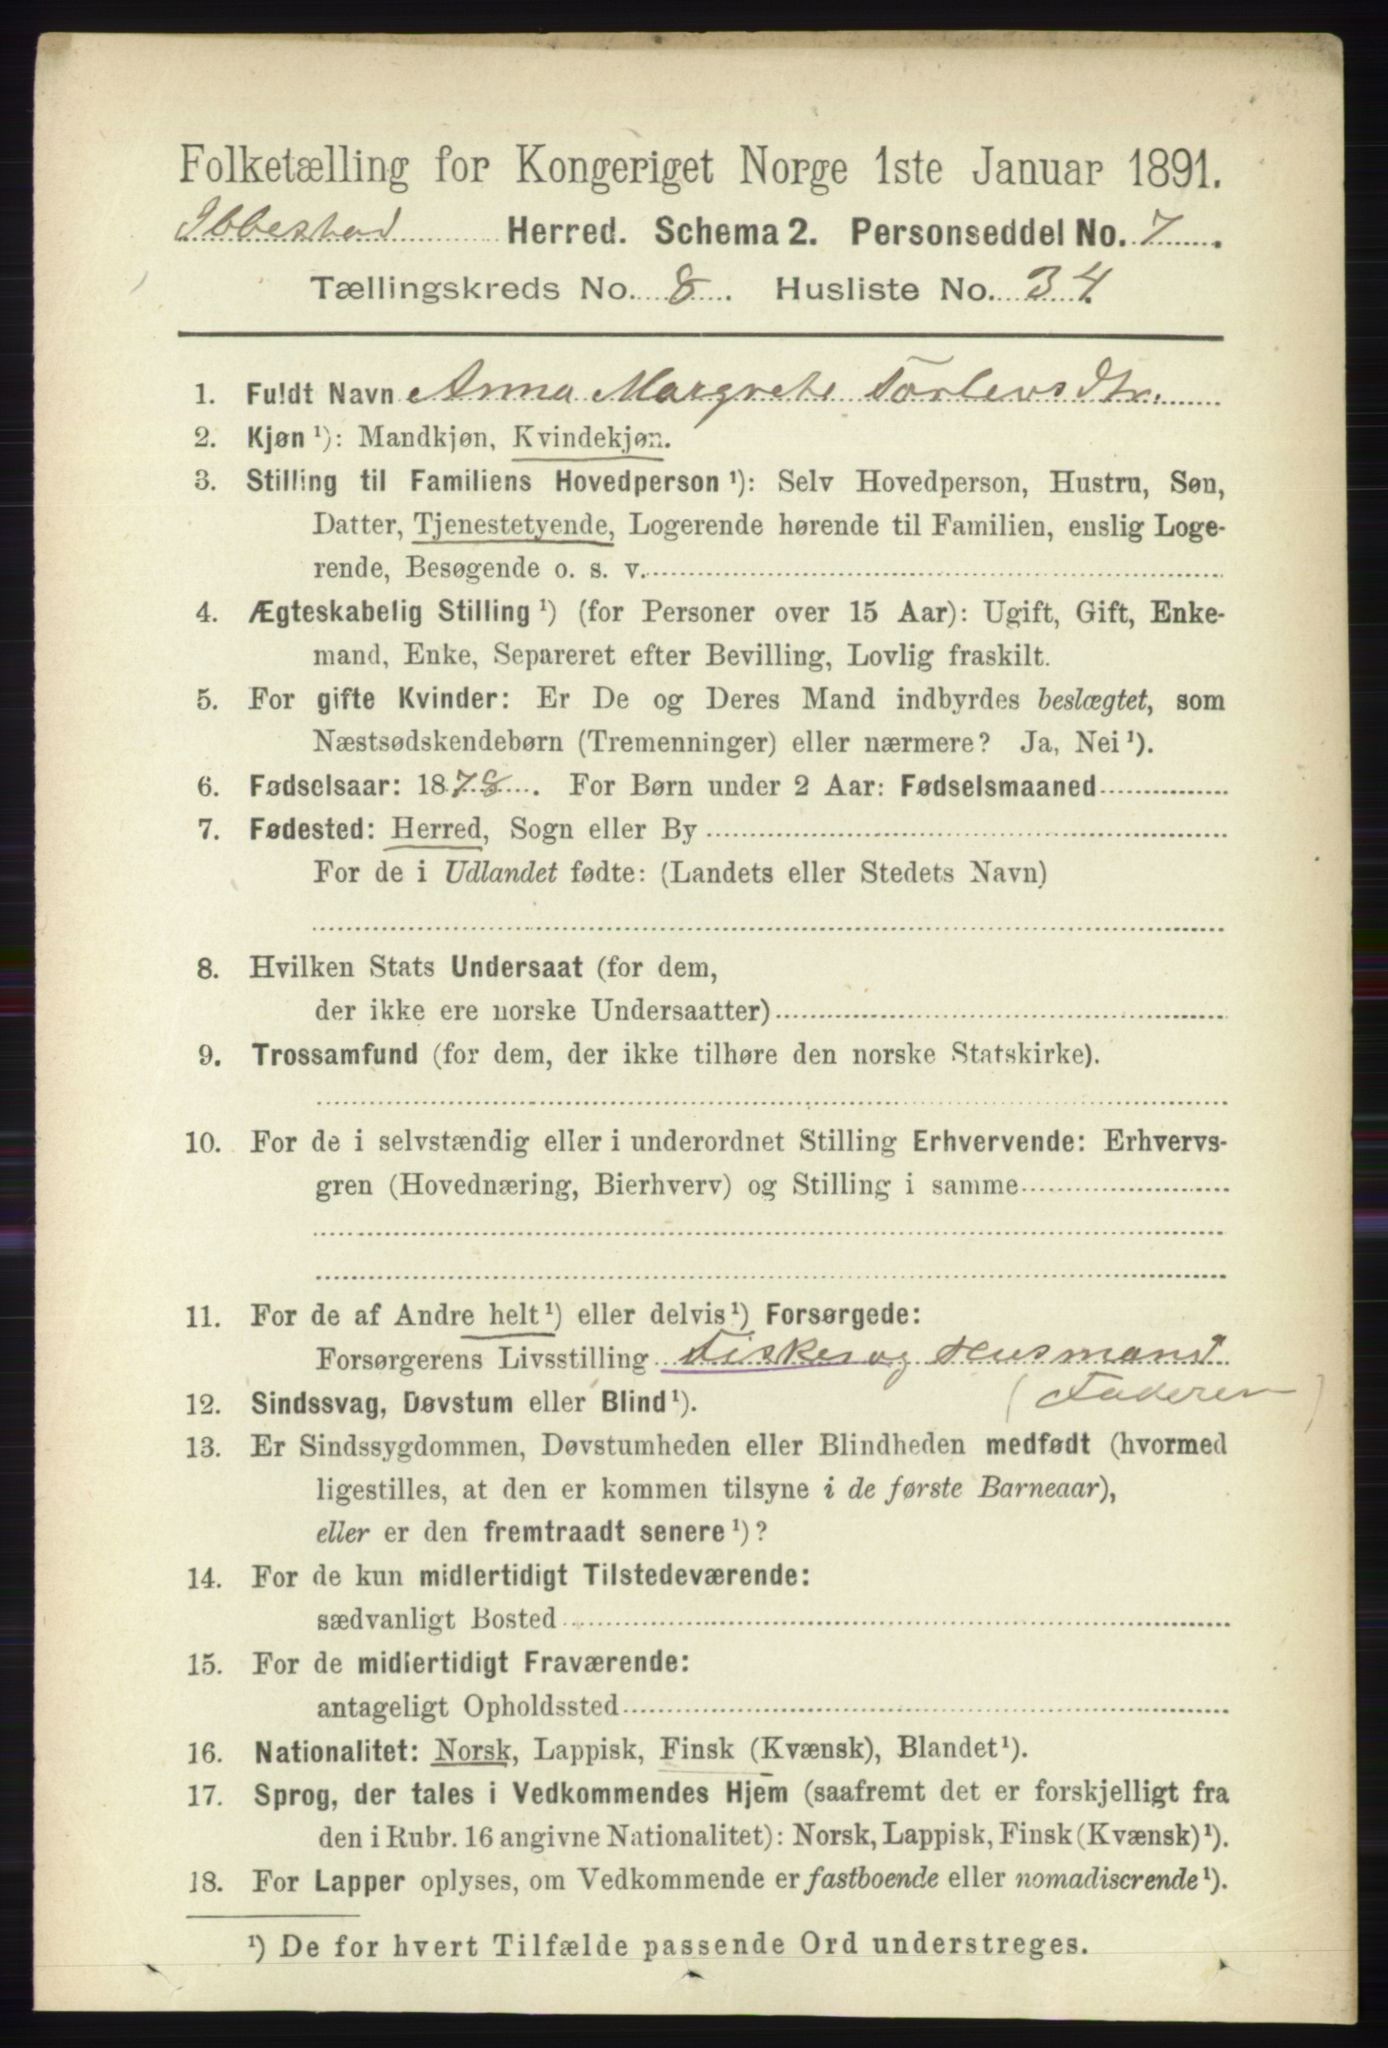 Folketælling for Kongeriget Norge 1ste Januar 1891.
Ibbestad Herred. Schema 2. Personseddel No. 7.
Tællingskreds No. 8. Husliste No. 34
1. Fuldt Navn Anna Margrete Torlevsdtr.
2. Kjøn ¹): Mandkjøn, Kvindekjøn.
3. Stilling til Familiens Hovedperson ¹): Selv Hovedperson, Hustru, Søn,
Datter, Tjenestetyende, Logerende hørende til Familien, enslig Loge-
rende, Besøgende o. s. v.
4. Ægteskabelig Stilling ¹) (for Personer over 15 Aar): Ugift, Gift, Enke-
mand, Enke, Separeret efter Bevilling, Lovlig fraskilt.
5. For gifte Kvinder: Er De og Deres Mand indbyrdes beslægtet, som
Næstsødskendebørn (Tremenninger) eller nærmere? Ja, Nei ¹).
6. Fødselsaar: 1878. For Børn under 2 Aar: Fødselsmaaned
7. Fødested: Herred, Sogn eller By
For de i Udlandet fødte: (Landets eller Stedets Navn)
8. Hvilken Stats Undersaat (for dem,
der ikke ere norske Undersaatter)
9. Trossamfund (for dem, der ikke tilhøre den norske Statskirke).
10. For de i selvstændig eller i underordnet Stilling Erhvervende: Erhvervs-
gren (Hovednæring, Bierhverv) og Stilling i samme
11. For de af Andre helt ¹) eller delvis ¹) Forsørgede:
Forsørgerens Livsstilling Fisker og Husmand
(Faderen)
12. Sindssvag, Døvstum eller Blind ¹).
13. Er Sindssygdommen, Døvstumheden eller Blindheden medfødt (hvormed
ligestilles, at den er kommen tilsyne i de første Barneaar),
eller er den fremtraadt senere ¹)?
14. For de kun midlertidigt Tilstedeværende:
sædvanligt Bosted
15. For de midlertidigt Fraværende:
antageligt Opholdssted
16. Nationalitet: Norsk, Lappisk, Finsk (Kvænsk), Blandet ¹).
17. Sprog, der tales i Vedkommendes Hjem (saafremt det er forskjelligt fra
den i Rubr. 16 angivne Nationalitet): Norsk, Lappisk, Finsk (Kvænsk) ¹).
18. For Lapper oplyses, om Vedkommende er fastboende eller nomadiserende ¹).
¹) De for hvert Tilfælde passende Ord understreges.